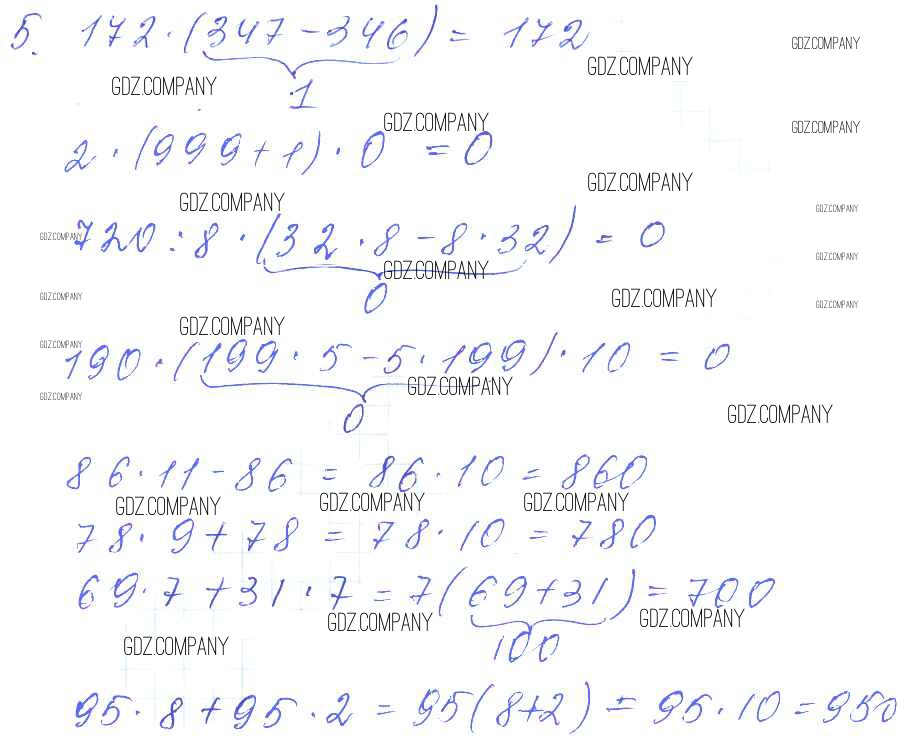 5. 172 · (347 - 346) = 172
GDZ.COMPANY
GDZ.COMPANY
GDZ.COMPANY
1
GDZ.COMPANY
GDZ.COMPANY
2 · (999 + 1) · 0 = 0
GDZ.COMPANY
GDZ.COMPANY
GDZ.COMPANY
GDZ.COMPANY
720 : 8 · (32 · 8 - 8 · 32) = 0
GDZ.COMPANY
GDZ.COMPANY
0
GDZ.COMPANY
GDZ.COMPANY
GDZ.COMPANY
GDZ.COMPANY
GDZ.COMPANY
190 · (199 · 5 - 5 · 199) · 10 = 0
GDZ.COMPANY
GDZ.COMPANY
0
GDZ.COMPANY
86 · 11 - 86 = 86 · 10 = 860
GDZ.COMPANY GDZ.COMPANY GDZ.COMPANY
78 · 9 + 78 = 78 · 10 = 780
69 · 7 + 31 · 7 = 7 (69 + 31) = 700
GDZ.COMPANY GDZ.COMPANY
100
GDZ.COMPANY
95 · 8 + 95 · 2 = 95 (8+2) = 95 · 10 = 950